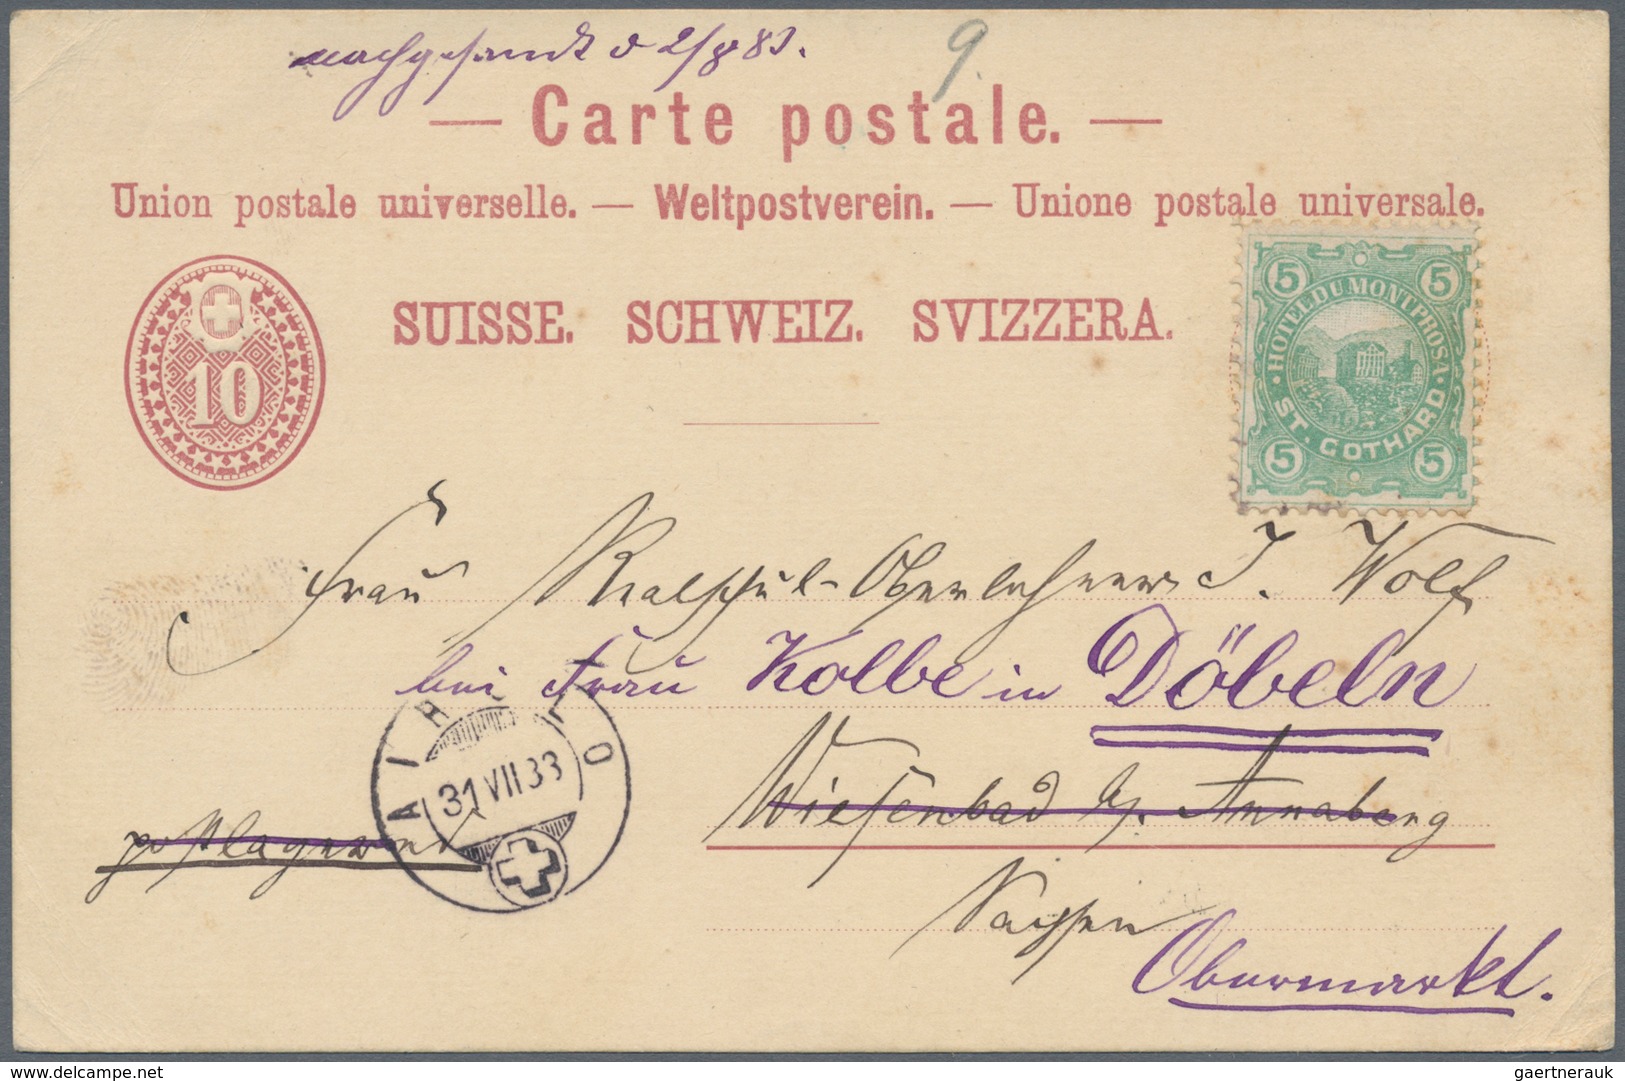 nachgesandt d 2/8 83.
9.
— Carte postale. —
Union postale universelle. — Weltpostverein. — Unione postale universale.
10
SUISSE. SCHWEIZ. SVIZZERA.
5 5
HOTEL DU MONT PROSA
ST. GOTHARD
5 5
Frau Realschul-Oberlehrer J. Wolf
bei Frau Kolbe in Döbeln
AIROLO
31 VII 83
Wiesenbad b/. Annaberg
postlagernd
Sachsen
Obermarkt.
gaertnerauk